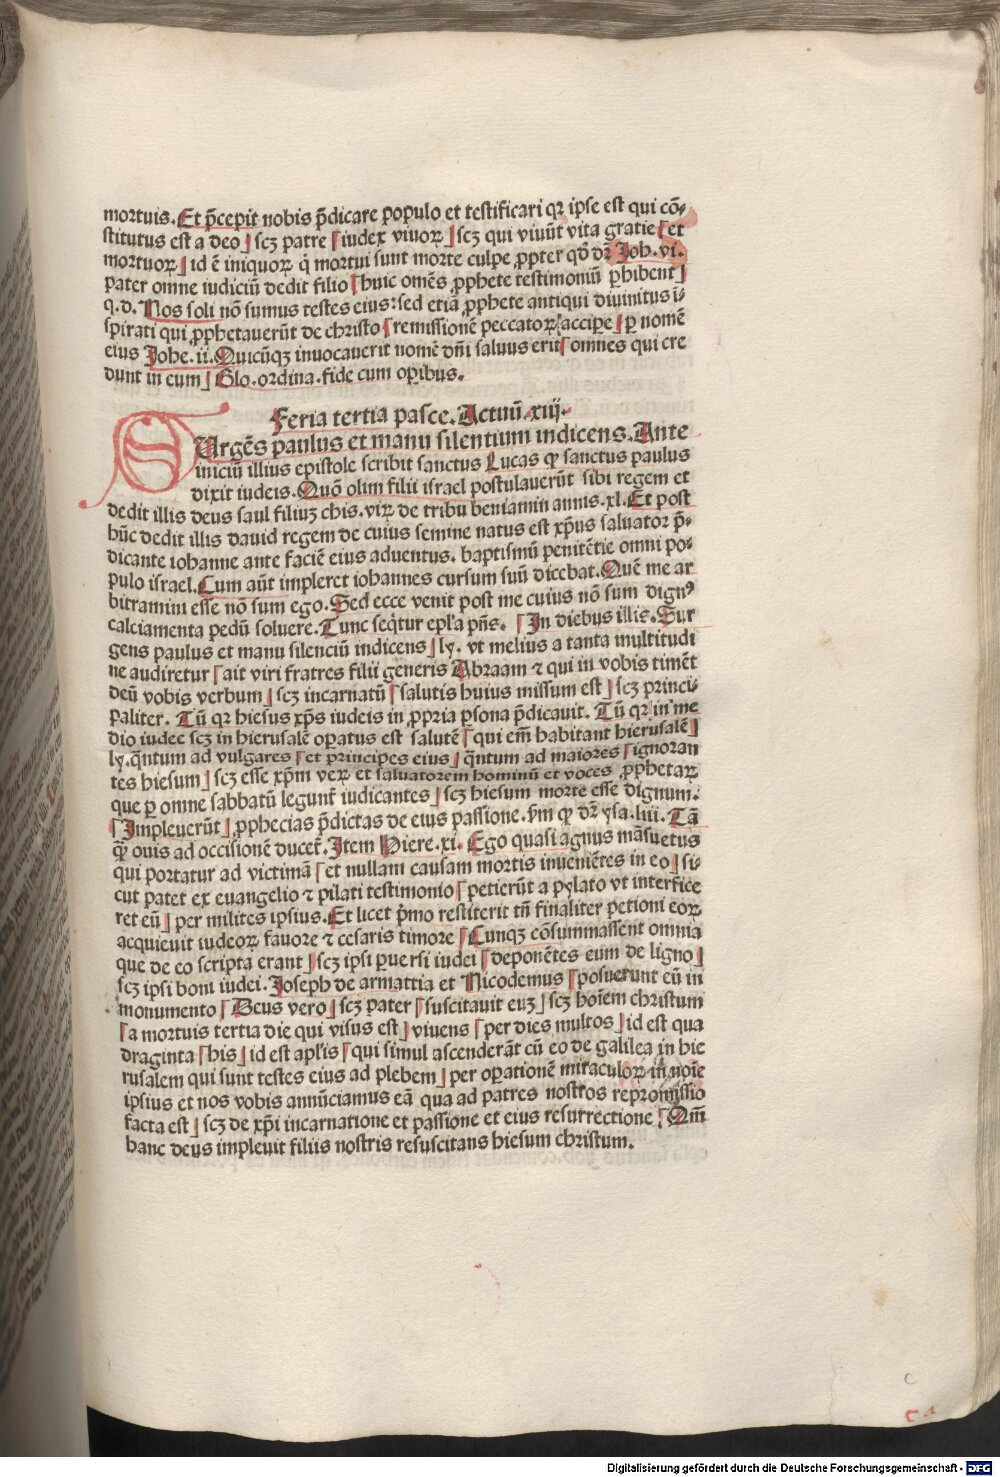 mortuis. Et p̄cepit nobis p̄dicare populo et testificari qꝛ ipse est qui cō⸗
stitutus est a deo ] scꝫ patre [ iudex viuoꝝ ] scꝫ qui viuūt vita gratie [ et
mortuoꝝ ] id ē iniquoꝝ q̇ mortui sunt morte culpe ꝓpter qd̓ dr̄ Joh. vi.
pater omne iudiciū dedit filio [ huic omēs ꝓphete testimoniū ꝑhibent ]
q. d. Nos soli nō sumus testes eius: sed etiā ꝓphete antiqui diuinitus i⸗
spirati qui ꝓphetauerūt de christo [ remissionē peccatoꝝ accipe [ ꝑ nomē
eius Johe. ii. Quicūqꝫ inuocauerit nomē dn̄i saluus erit [ omnes qui cre
dunt in eum ] Glo. ordina. fide cum oꝑibus.
Feria tertia pasce. Actuū. xiij.
SUrgēs paulus et manu silentium indicens. Ante
iniciū illius epistole scribit sanctus Lucas ꝙ sanctus paulus
dixit iudeis. Quō olim filii israel postulauerūt sibi regem et
dedit illis deus saul filiuꝫ chis. viꝝ de tribu beniamin annis. xl. Et post
hūc dedit illis dauid regem de cuius semine natus est xp̄us saluator p̄⸗
dicante iohanne ante faciē eius aduentus. baptismū penitētie omni po⸗
pulo israel. Cum aūt impleret iohannes cursum suū dicebat. Quē me ar
bitramini esse nō sum ego. Sed ecce venit post me cuius nō sum dignꝰ
calciamenta pedū soluere. Tunc seq̄tur epl̄a pn̄s. [ In diebus illis. Sur
gens paulus et manu silenciū indicens ] ly. vt melius a tanta multitudi
ne audiretur [ ait viri fratres filii generis Abraam ⁊ qui in vobis timēt
deū vobis verbum ] scꝫ incarnatū [ salutis huius missum est ] scꝫ princi⸗
paliter. Tū qꝛ hiesus xp̄s iudeis in ꝓpria ꝑsona p̄dicauit. Tū qꝛ in me
dio iudee scꝫ in hierusalē oꝑatus est salutē [ qui em̄ habitant hierusalē ]
ly. q̄ntum ad vulgares [ et principes eius ] q̄ntum ad maiores [ ignoran
tes hiesum ] scꝫ esse xp̄m veꝝ et saluatorem hominū et voces ꝓphetaꝝ
que ꝑ omne sabbatū legunt̄ iudicantes ] scꝫ hiesum morte esse dignum.
[ Impleuerūt ] ꝓphecias p̄dictas de eius passione. ẜm ꝙ dr̄ ysa. liii. Tā
ꝙ̄ ouis ad occisionē ducet̄. Item Hiere. xi. Ego quasi agnus māsuetus
qui portatur ad victimā [ et nullam causam mortis inueniētes in eo ] si⸗
cut patet ex euangelio ⁊ pilati testimonio [ petierūt a pylato vt interfice
ret eū ] per milites ipsius. Et licet p̄mo restiterit tn̄ finaliter petioni eoꝝ
acquieuit iudeoꝝ fauore ⁊ cesaris timore [ Cunqꝫ cōsummassent omnia
que de eo scripta erant ] scꝫ ipsi ꝑuersi iudei [ deponētes eum de ligno ]
scꝫ ipsi boni iudei. Joseph de armattia et Nicodemus [ posuerunt eū in
monumento [ Deus vero ] scꝫ pater [ suscitauit euꝫ ] scꝫ hoīem christum
[ a mortuis tertia die qui visus est ] viuens [ per dies multos ] id est qua
draginta [ his ] id est apl̄is [ qui simul ascenderāt cū eo de galilea in hie
rusalem qui sunt testes eius ad plebem ] per oꝑationē miraculoꝝ in noīe
ipsius et nos vobis annūciamus eā qua ad patres nostros repromissio
facta est ] scꝫ de xp̄i incarnatione et passione et eius resurrectione [ Qm̄
hanc deus impleuit filiis nostris resuscitans hiesum christum.
Digitalisierung gefördert durch die Deutsche Forschungsgemeinschaft - DFG